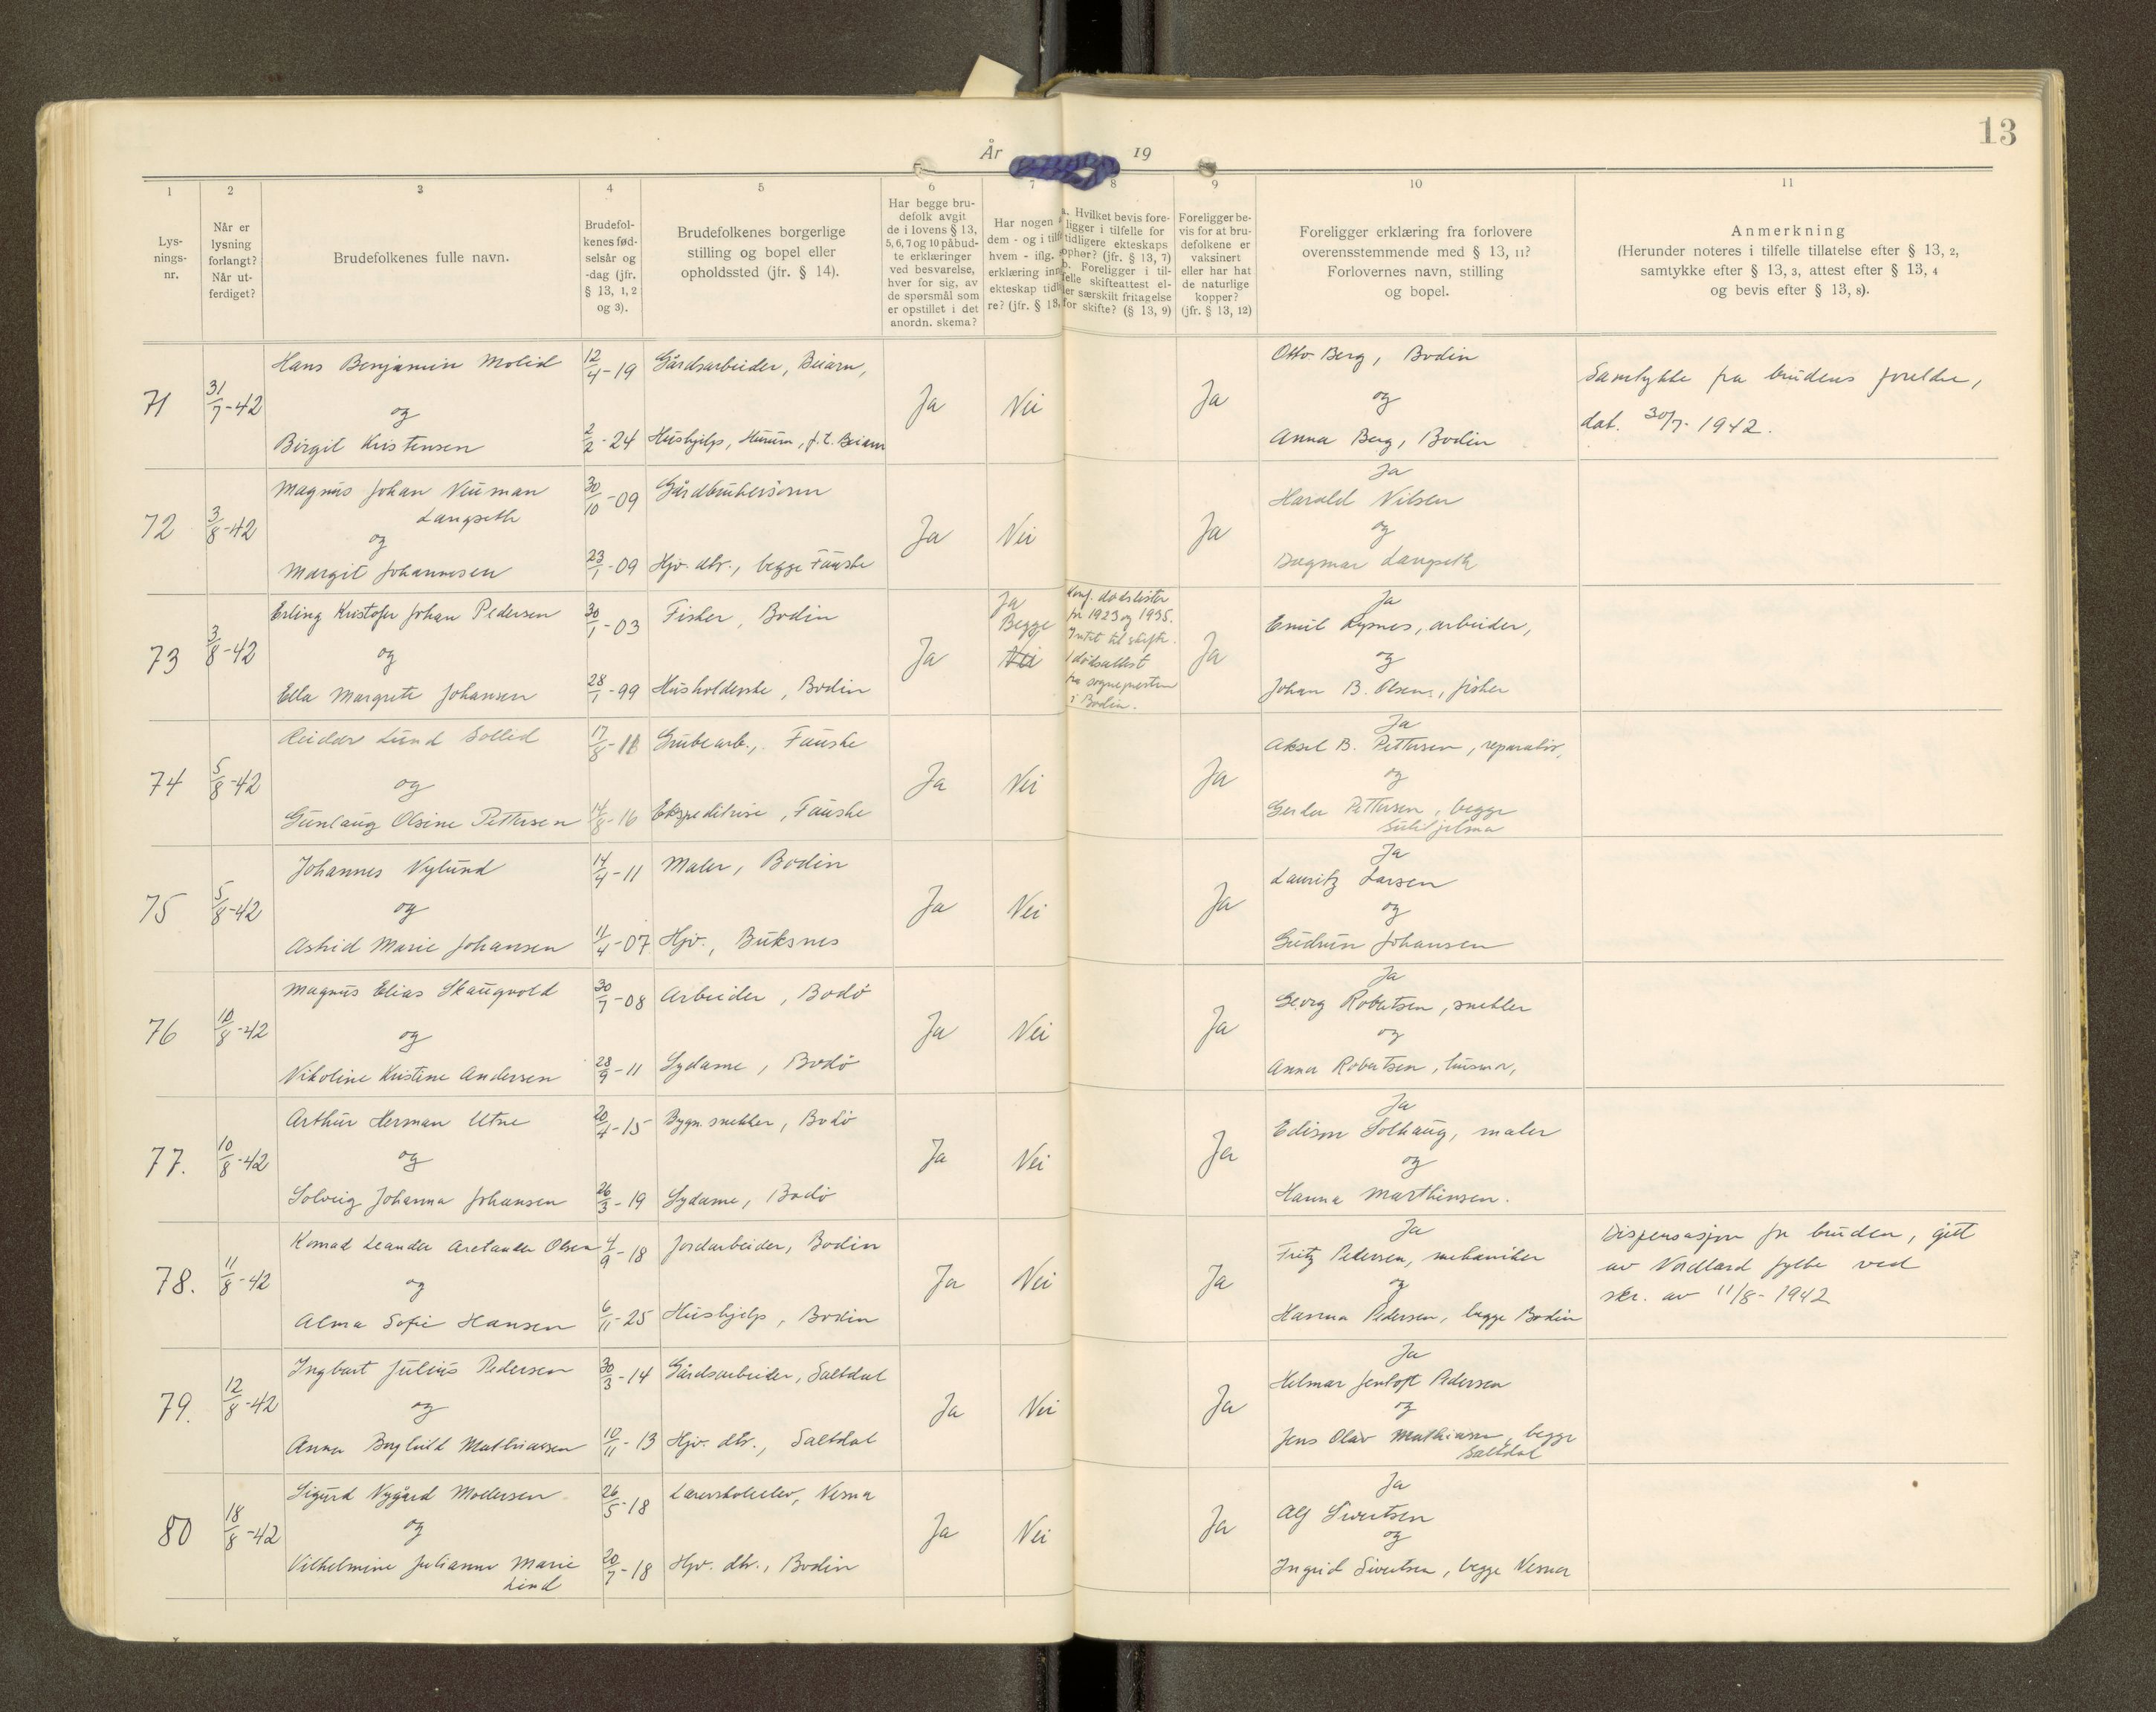 13
År 19
1 2 3 4 5 6 7 8 9 10 11
Lys-
nings-
nr.
Når er
lysning
forlangt?
Når ut-
ferdiget?
Brudefolkenes fulle navn.
Brudefol-
kenes fød-
selsår og
-dag (jfr.
§ 13, 1, 2
og 3).
Brudefolkenes borgerlige
stilling og bopel eller
opholdssted (jfr. § 14).
Har begge bru-
defolk avgit
de i lovens § 13,
5, 6, 7 og 10 påbud-
te erklæringer
ved besvarelse,
hver for sig, av
de spørsmål som
er opstillet i det
anordn. skema?
Har nogen
dem - og i tilf
hvem - iflg.
erklæring inn
ekteskap tidl
re? (jfr. § 13,
a. Hvilket bevis fore-
ligger i tilfelle for
tidligere ekteskaps
ophør? (jfr. § 13, 7)
b. Foreligger i til-
felle skifteattest el-
ler særskilt fritagelse
for skifte? (§ 13, 9)
Foreligger be-
vis for at bru-
defolkene er
vaksinert
eller har hat
de naturlige
kopper?
(jfr. § 13, 12)
Foreligger erklæring fra forlovere
overensstemmende med § 13, 11?
Forlovernes navn, stilling
og bopel.
Anmerkning
(Herunder noteres i tilfelle tillatelse efter § 13, 2,
samtykke efter § 13, 3, attest efter § 13, 4
og bevis efter § 13, 8).
71 31/7-42 Hans Benjamin Molid 12/4-19 Gårdsarbeider, Beiarn,
og Ja Nei Ja
Birgit Kristensen 2/2-24 Hushjelp, Hurum, f.t. Beiarn
Otto Berg, Bodin
og
Anna Berg, Bodin
Samtykke fra brudens foreldre,
dat. 30/7-1942.
72 3/8-42 Magnus Johan Neuman 30/10-09 Gårdbrukersønn
Langseth
og Ja Nei Ja
Margit Johannesen 23/1-09 Hjv. dtr., begge Fauske
Ja
Harald Nilsen
og
Dagmar Langseth
73 3/8-42 Erling Kristofer Johan Pedersen 30/1-03 Fisker, Bodin
og Ja Ja Begge Nei
Ella Margrete Johansen 28/1-99 Husholderske, Bodin
Konf. dødslister
for 1923 og 1935.
Intet til skifte.
1 dødsattest
fra sognepresten
i Bodin.
Ja
Ja
Emil Rypnes, arbeider,
og
Johan B. Olsen, fisker
74 5/8-42 Reidar Lund Sollid 17/8-11 Grubearb., Fauske
og Ja Nei Ja
Gunlaug Olsine Pettersen 14/8-16 Ekspeditrise, Fauske
Ja
Aksel B. Pettersen, reparatør,
og
Gerda Pettersen, begge
Sulitjelma
75 5/8-42 Johannes Nylund 14/4-11 Maler, Bodin
og Ja Nei Ja
Astrid Marie Johansen 11/4-07 Hjv., Buksnes
Ja
Lauritz Larsen
og
Gudrun Johansen
76 10/8-42 Magnus Elias Skaugvold 30/7-08 Arbeider, Bodø
og Ja Nei Ja
Nikoline Kristine Andersen 28/9-11 Sydame, Bodø
Ja
Georg Robertsen, snekker
og
Anna Robertsen, husmor,
77. 10/8-42 Arthur Herman Utne 20/4-15 Bygn. snekker, Bodø
og Ja Nei Ja
Solveig Johanna Johansen 26/3-19 Sydame, Bodø
Ja
Edison Solhaug, maler
og
Hanna Marthinsen.
78. 11/8-42 Konrad Leander Aretander Olsen 4/9-18 Jordarbeider, Bodin
og Ja Nei Ja
Alma Sofie Hansen 6/11-25 Hushjelp, Bodin
Ja
Fritz Pedersen, mekaniker
og
Hanna Pedersen, begge Bodin
Dispensasjon for bruden, gitt
av Nordland fylke ved
skr. av 11/8-1942
79. 12/8-42 Ingbart Julius Pedersen 30/3-14 Gårdsarbeider, Saltdal
og Ja Nei Ja
Anna Borghild Mathiassen 10/11-13 Hjv. dtr., Saltdal
Ja
Hilmar Jentoft Pedersen
og
Jens Olav Mathiasen, begge
Saltdal
80 18/8-42 Sigurd Nygård Mollersen 26/5-18 Lærerskoleelev, Nesna
og Ja Nei Ja
Vilhelmine Julianne Marie 20/7-18 Hjv. dtr., Bodin
Lind
Ja
Alf Sivertsen
og
Ingrid Sivertsen, begge Nesna